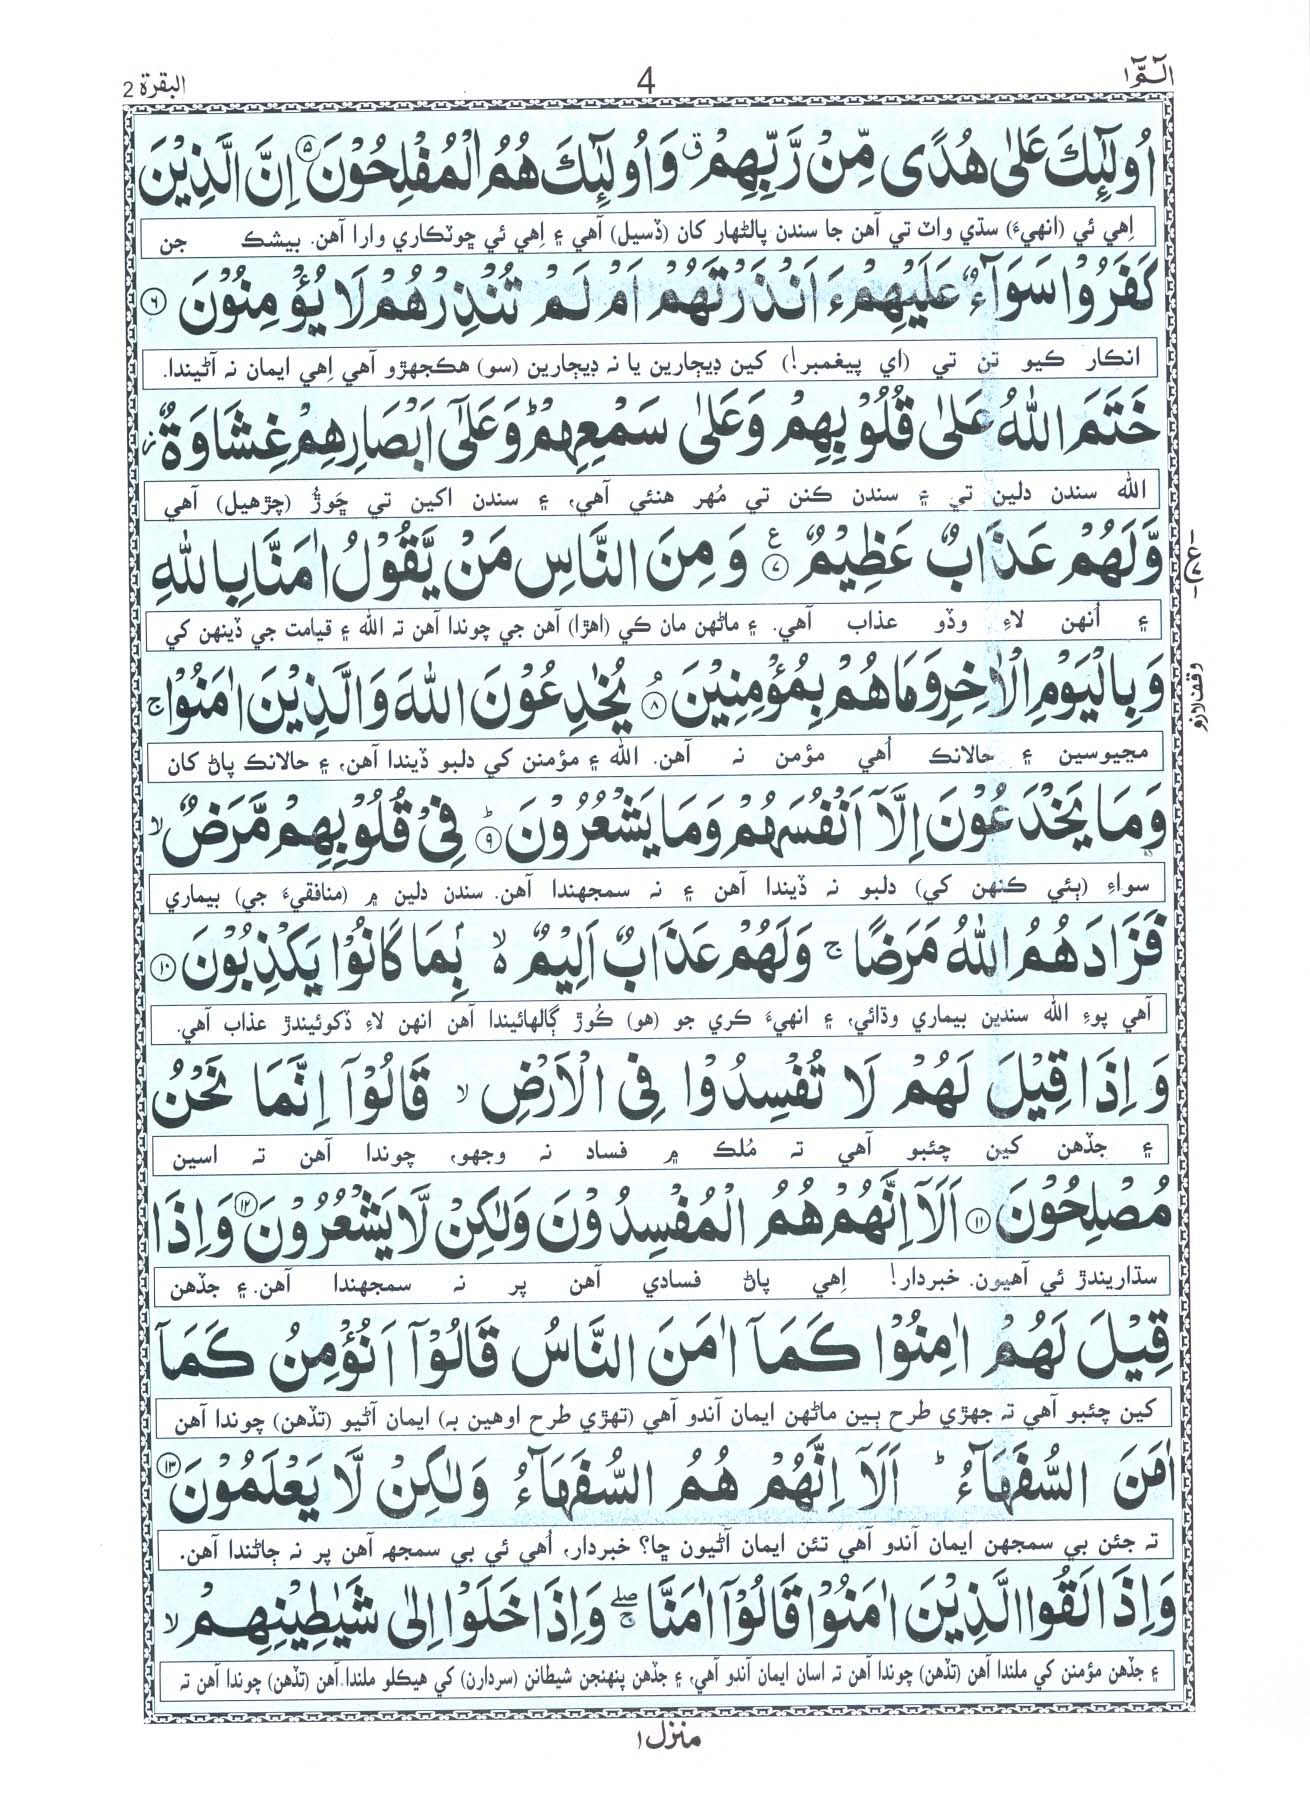 الٓمّٓ ١
4
البقرة 2
اُولٰٓئِكَ عَلٰى هُدًى مِّنْ رَّبِّهِمْ ۗ وَاُولٰٓئِكَ هُمُ الْمُفْلِحُوْنَ ۝٥ اِنَّ الَّذِيْنَ
اِهي ئي (انهيءَ) سڌي واٽ تي آهن جا سندن پالڻهار کان (ڏسيل) آهي ۽ اِهي ئي ڇوٽڪاري وارا آهن. بيشڪ جن
كَفَرُوْا سَوَآءٌ عَلَيْهِمْ ءَاَنْذَرْتَهُمْ اَمْ لَمْ تُنْذِرْهُمْ لَا يُؤْمِنُوْنَ ۝٦
انڪار ڪيو تن تي (اي پيغمبر!) کين ڊيڄارين يا نہ ڊيڄارين (سو) هڪجهڙو آهي اِهي ايمان نہ آڻيندا.
خَتَمَ اللّٰهُ عَلٰى قُلُوْبِهِمْ وَعَلٰى سَمْعِهِمْ ؕ وَعَلٰٓى اَبْصَارِهِمْ غِشَاوَةٌ ز
الله سندن دلين تي ۽ سندن ڪنن تي مُهر هنئي آهي، ۽ سندن اکين تي ڇَوڙُ (چڙهيل) آهي
وَّلَهُمْ عَذَابٌ عَظِيْمٌ ۝٧ ع وَمِنَ النَّاسِ مَنْ يَّقُوْلُ اٰمَنَّا بِاللّٰهِ
۽ اُنهن لاءِ وڏو عذاب آهي. ۽ ماڻهن مان ڪي (اهڙا) آهن جي چوندا آهن تہ الله ۽ قيامت جي ڏينهن کي
وَبِالْيَوْمِ الْاٰخِرِ وَمَا هُمْ بِمُؤْمِنِيْنَ ۝٨ۘ يُخٰدِعُوْنَ اللّٰهَ وَالَّذِيْنَ اٰمَنُوْا ج
مڃيوسين ۽ حالانڪ اُهي مؤمن نہ آهن. الله ۽ مؤمنن کي دلبو ڏيندا آهن، ۽ حالانڪ پاڻ کان
وَمَا يَخْدَعُوْنَ اِلَّآ اَنْفُسَهُمْ وَمَا يَشْعُرُوْنَ ۝٩ؕ فِيْ قُلُوْبِهِمْ مَّرَضٌ لا
سواءِ (ٻئي ڪنهن کي) دلبو نہ ڏيندا آهن ۽ نہ سمجهندا آهن. سندن دلين ۾ (منافقيءَ جي) بيماري
فَزَادَهُمُ اللّٰهُ مَرَضًا ج وَلَهُمْ عَذَابٌ اَلِيْمٌ لا بِمَا كَانُوْا يَكْذِبُوْنَ ۝١٠
آهي پوءِ الله سندين بيماري وڌائي، ۽ انهيءَ ڪري جو (هو) ڪُوڙ ڳالهائيندا آهن انهن لاءِ ڏکوئيندڙ عذاب آهي.
وَاِذَا قِيْلَ لَهُمْ لَا تُفْسِدُوْا فِي الْاَرْضِ لا قَالُوْٓا اِنَّمَا نَحْنُ
۽ جڏهن کين چئبو آهي تہ مُلڪ ۾ فساد نہ وجهو، چوندا آهن تہ اسين
مُصْلِحُوْنَ ۝١١ اَلَآ اِنَّهُمْ هُمُ الْمُفْسِدُوْنَ وَلٰكِنْ لَّا يَشْعُرُوْنَ ۝١٢ وَاِذَا
سڌاريندڙ ئي آهيون. خبردار! اِهي پاڻ فسادي آهن پر نہ سمجهندا آهن. ۽ جڏهن
قِيْلَ لَهُمْ اٰمِنُوْا كَمَآ اٰمَنَ النَّاسُ قَالُوْٓا اَنُؤْمِنُ كَمَآ
کين چئبو آهي تہ جهڙي طرح ٻين ماڻهن ايمان آندو آهي (تهڙي طرح اوهين بہ) ايمان آڻيو (تڏهن) چوندا آهن
اٰمَنَ السُّفَهَآءُ ؕ اَلَآ اِنَّهُمْ هُمُ السُّفَهَآءُ وَلٰكِنْ لَّا يَعْلَمُوْنَ ۝١٣
تہ جئن بي سمجهن ايمان آندو آهي تئن ايمان آڻيون ڇا؟ خبردار، اُهي ئي بي سمجهہ آهن پر نہ ڄاڻندا آهن.
وَاِذَا لَقُوا الَّذِيْنَ اٰمَنُوْا قَالُوْٓا اٰمَنَّا ۖۚ وَاِذَا خَلَوْا اِلٰى شَيٰطِيْنِهِمْ لا
۽ جڏهن مؤمنن کي ملندا آهن (تڏهن) چوندا آهن تہ اسان ايمان آندو آهي، ۽ جڏهن پنهنجن شيطانن (سردارن) کي هيڪلو ملندا آهن (تڏهن) چوندا آهن تہ
ع
وقف لازم
منزل ١